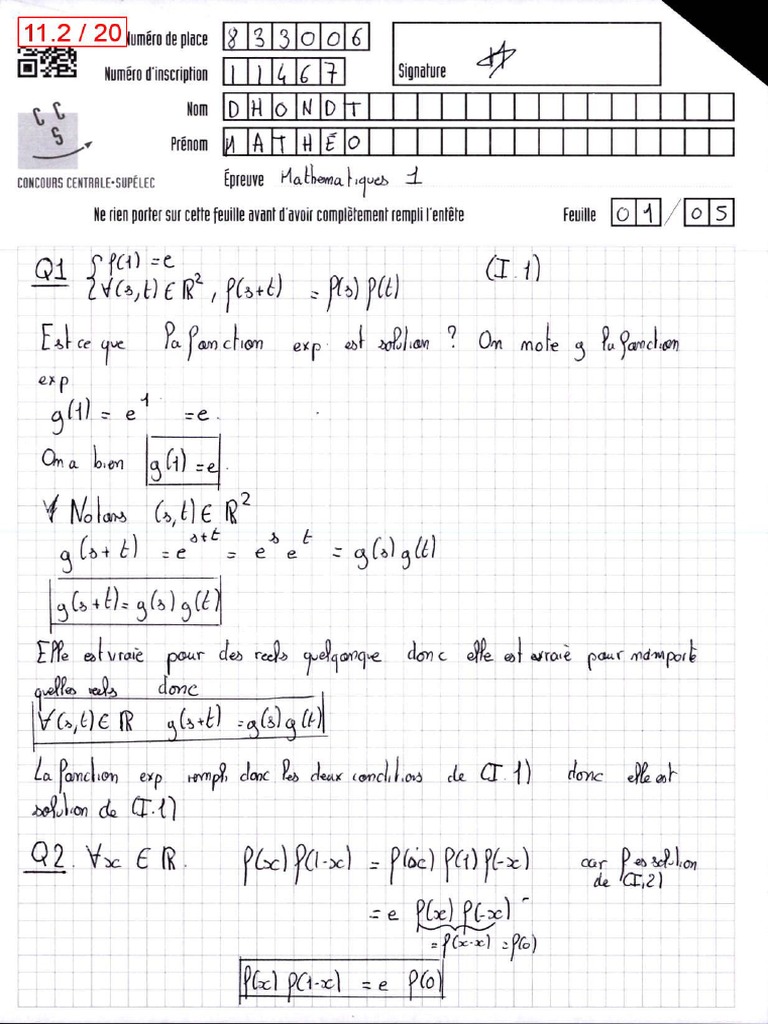 11.2 / 20
Numéro de place 833006
Numéro d'inscription 11467
Signature
Nom DHONDT
Prénom MATHÉO
CCS
CONCOURS CENTRALE•SUPÉLEC
Épreuve Mathematiques 1
Ne rien porter sur cette feuille avant d'avoir complètement rempli l'entête
Feuille 01/05
Q1 { f(1) = e
{ ∀(s,t) ∈ ℝ², f(s+t) = f(s) f(t) (I.1)
Est ce que la fonction exp est solution ? On note g la fonction
exp
g(1) = e¹ = e.
On a bien g(1) = e.
Notons (s,t) ∈ ℝ²
g(s+t) = e^{s+t} = e^s e^t = g(s) g(t)
g(s+t) = g(s) g(t)
Elle est vraie pour des reels quelqonque donc elle est vraie pour nomporte
quelles reels donc
∀(s,t) ∈ ℝ g(s+t) = g(s) g(t)
La fonction exp rempli donc les deux conditions de (I.1) donc elle est
solution de (I.1)
Q2. ∀x ∈ ℝ. f(x) f(1-x) = f(x) f(1) f(-x) car f es solution
de (I,2)
= e f(x) f(-x)
= f(x-x) = f(0)
f(x) f(1-x) = e f(0)